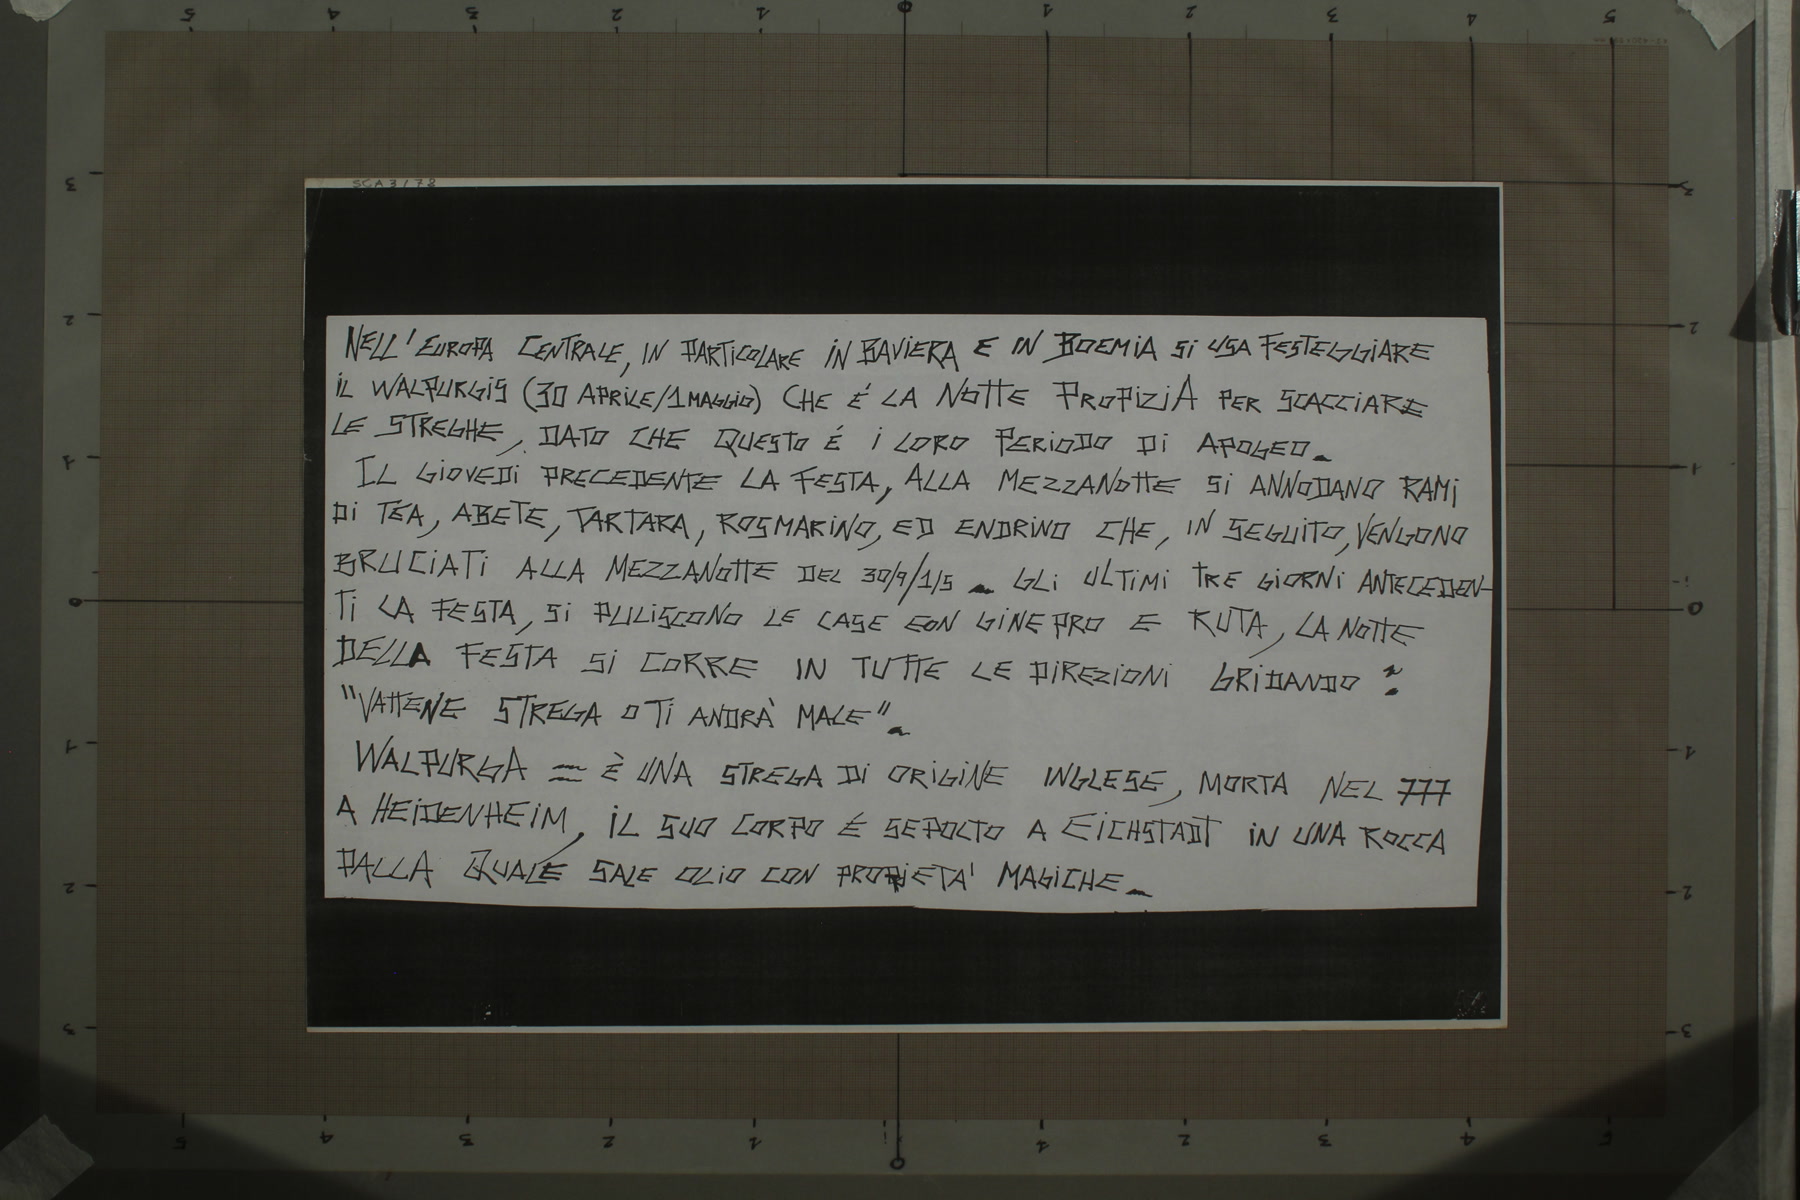 SCA3/78
NELL'EUROPA CENTRALE, IN PARTICOLARE IN BAVIERA E IN BOEMIA SI USA FESTEGGIARE
IL WALPURGIS (30 APRILE/1 MAGGIO) CHE É LA NOTTE PROPIZIA PER SCACCIARE
LE STREGHE, DATO CHE QUESTO É I LORO PERIODO DI APOGEO.
IL GIOVEDI PRECEDENTE LA FESTA, ALLA MEZZANOTTE SI ANNODANO RAMI
DI TEA, ABETE, TARTARA, ROSMARINO, ED ENDRINO CHE, IN SEGUITO, VENGONO
BRUCIATI ALLA MEZZANOTTE DEL 30/9/1/5. GLI ULTIMI TRE GIORNI ANTECEDEN-
TI LA FESTA, SI PULISCONO LE CASE CON GINEPRO E RUTA, LA NOTTE
DELLA FESTA SI CORRE IN TUTTE LE DIREZIONI GRIDANDO:
"VATTENE STREGA O TI ANDRÀ MALE".
WALPURGA = È UNA STREGA DI ORIGINE INGLESE, MORTA NEL 777
A HEIDENHEIM, IL SUO CORPO É SEPOLTO A EICHSTADT IN UNA ROCCA
DALLA QUALE SALE OLIO CON PROPRIETA' MAGICHE.
5 4 3 2 1 0 1 2 3 4 5
3 2 1 0 1 2 3
3 2 1 0 1 2 3
5 4 3 2 1 0 1 2 3 4 5